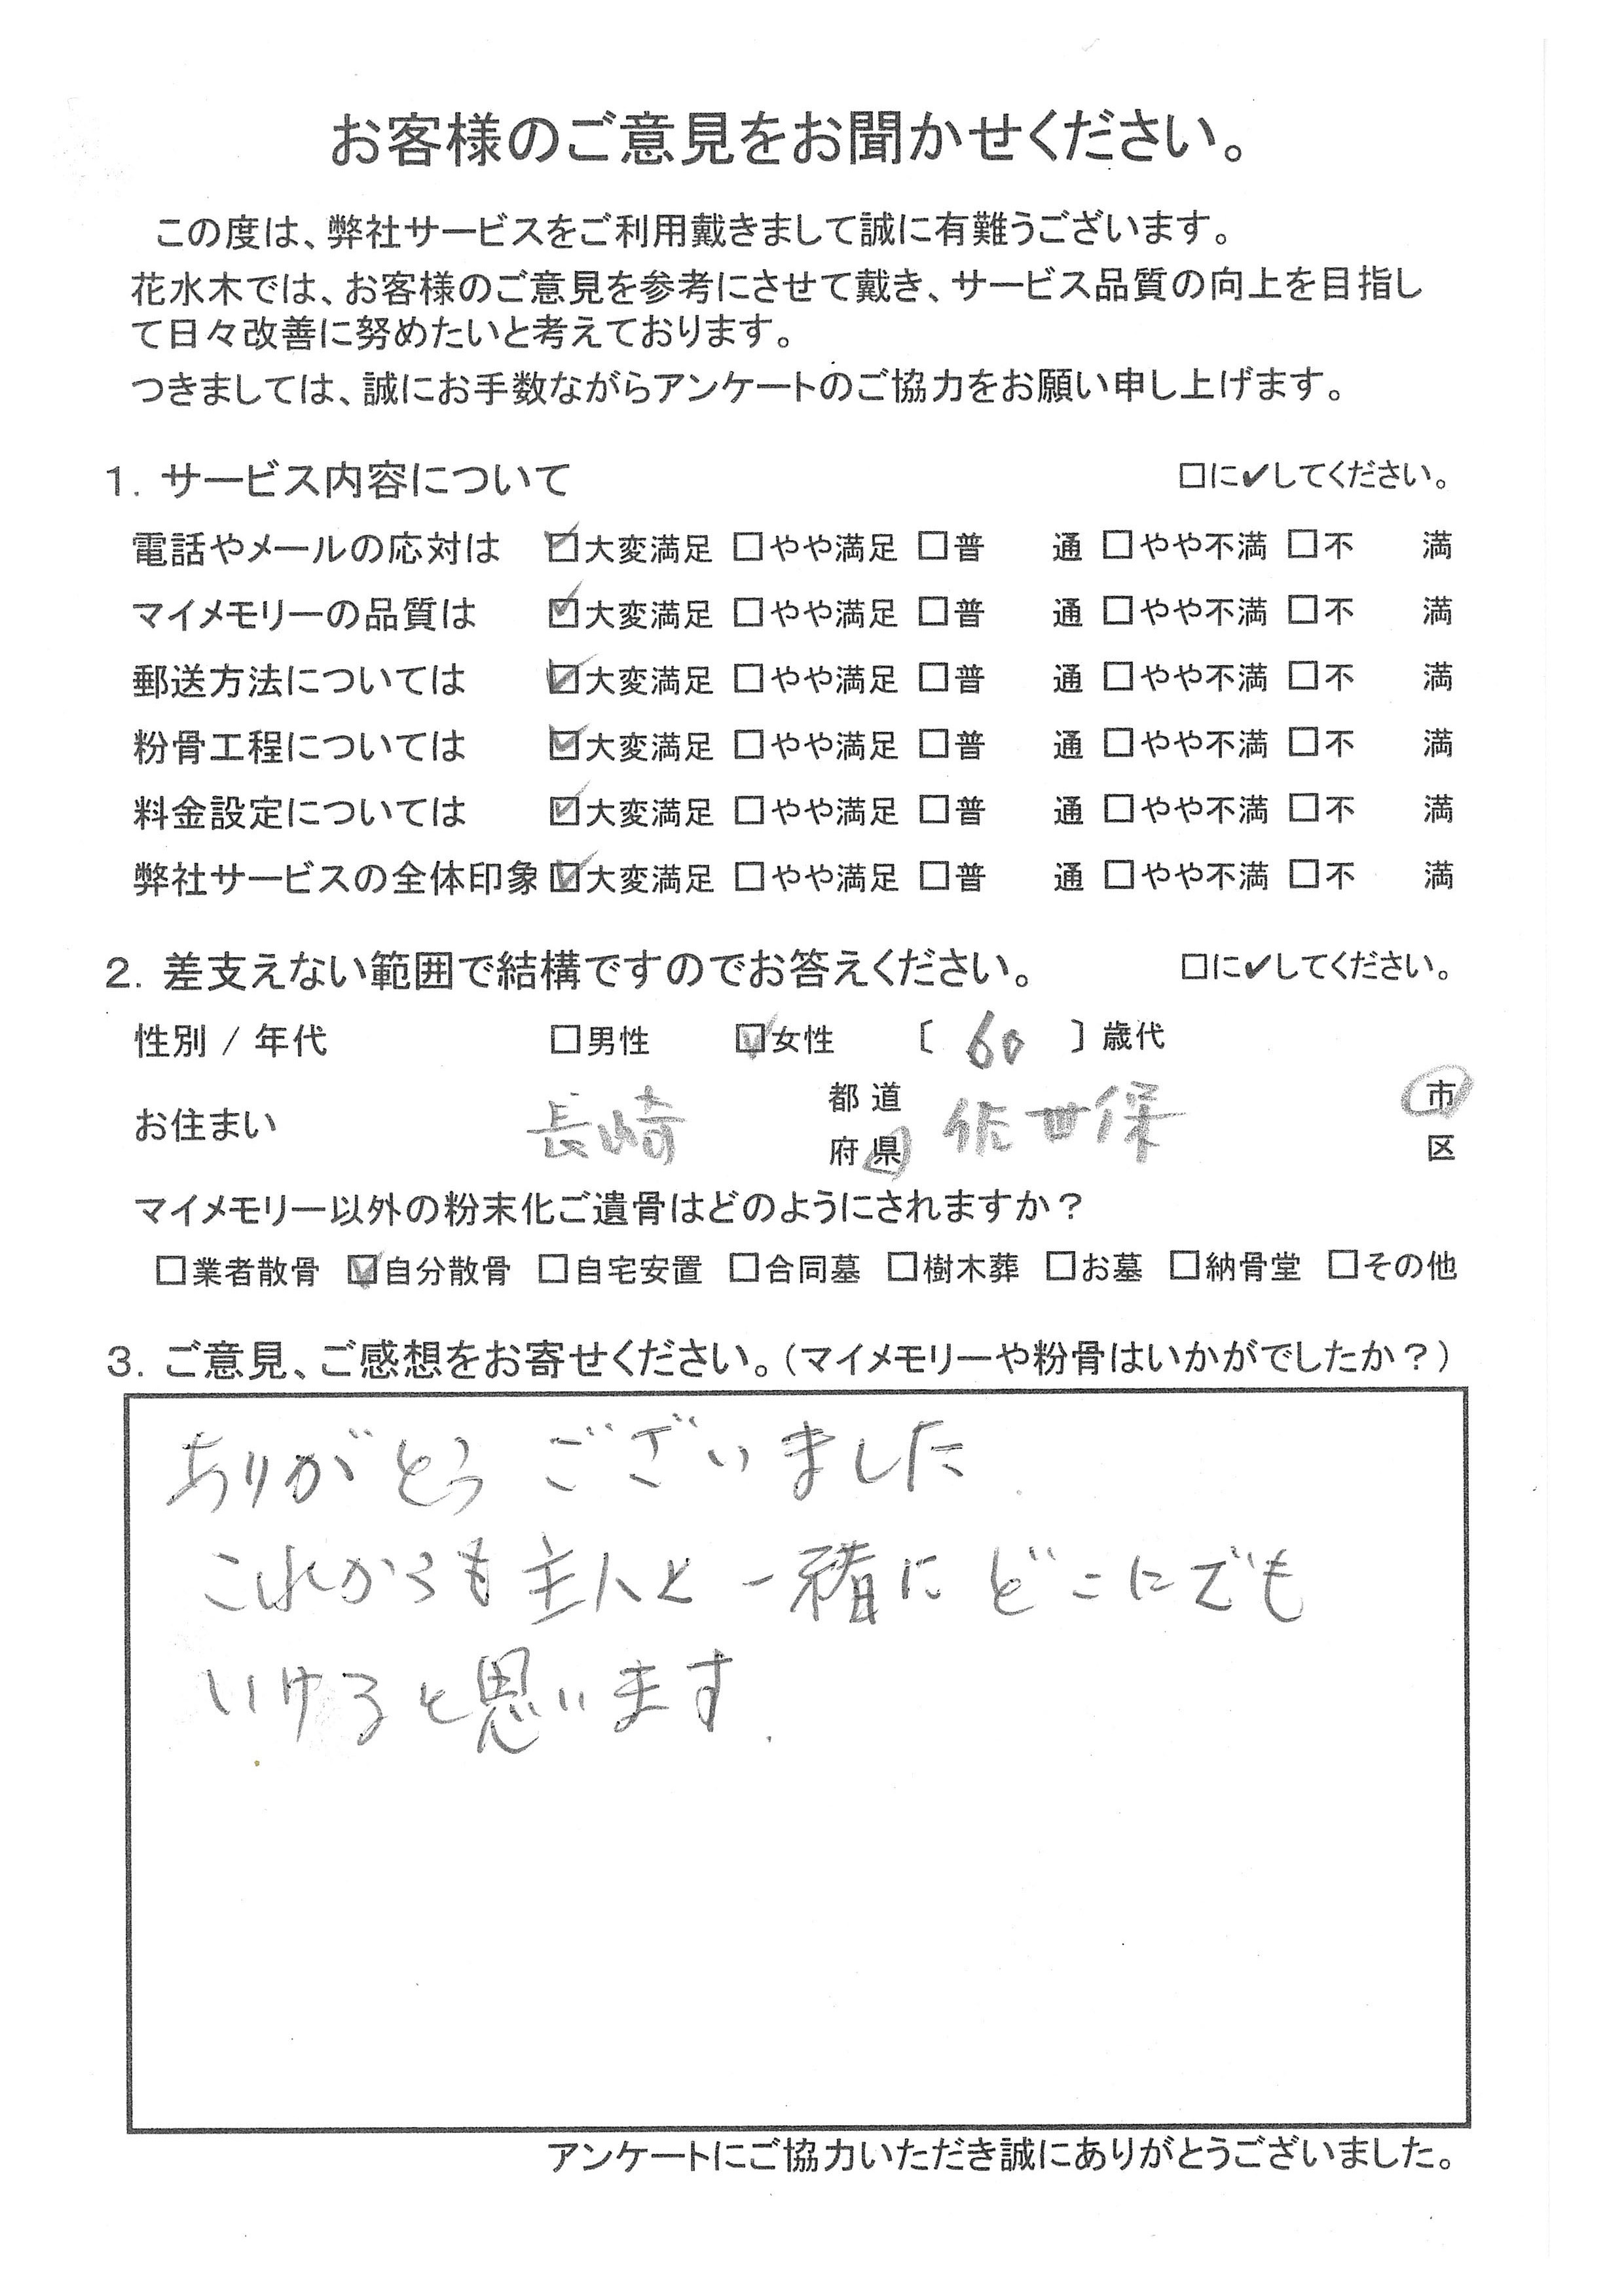 お客様のご意見をお聞かせください。
この度は、弊社サービスをご利用戴きまして誠に有難うございます。
花水木では、お客様のご意見を参考にさせて戴き、サービス品質の向上を目指し
て日々改善に努めたいと考えております。
つきましては、誠にお手数ながらアンケートのご協力をお願い申し上げます。
1. サービス内容について □に✔してください。
電話やメールの応対は ☑大変満足 □やや満足 □普 通 □やや不満 □不 満
マイメモリーの品質は ☑大変満足 □やや満足 □普 通 □やや不満 □不 満
郵送方法については ☑大変満足 □やや満足 □普 通 □やや不満 □不 満
粉骨工程については ☑大変満足 □やや満足 □普 通 □やや不満 □不 満
料金設定については ☑大変満足 □やや満足 □普 通 □やや不満 □不 満
弊社サービスの全体印象 ☑大変満足 □やや満足 □普 通 □やや不満 □不 満
2. 差支えない範囲で結構ですのでお答えください。 □に✔してください。
性別 / 年代 □男性 ☑女性 〔 60 〕歳代
お住まい 長崎 都道府県 佐世保 市区
マイメモリー以外の粉末化ご遺骨はどのようにされますか？
□業者散骨 ☑自分散骨 □自宅安置 □合同墓 □樹木葬 □お墓 □納骨堂 □その他
3. ご意見、ご感想をお寄せください。（マイメモリーや粉骨はいかがでしたか？）
ありがとうございました
これからも主人と一緒にどこにでも
いけると思います.
アンケートにご協力いただき誠にありがとうございました。